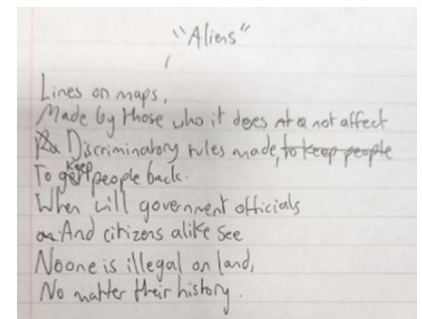 "Aliens"
Lines on maps,
Made by those who it does not affect
Discriminatory rules made, to keep people
To keep people back.
When will government officials
And citizens alike see
Noone is illegal on land,
No matter their history.